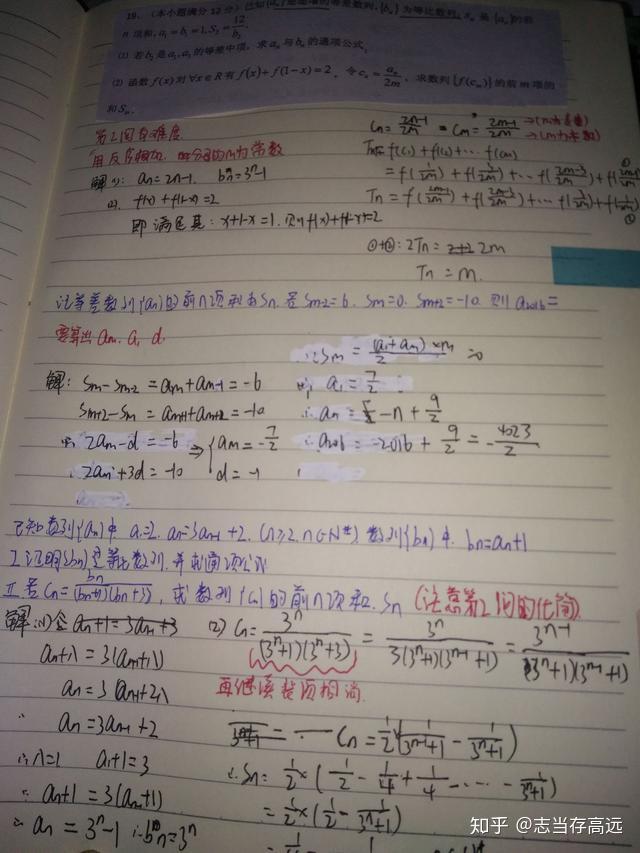 19.（本小题满分12分）已知{aₙ}是递增的等差数列,{bₙ}为等比数列, Sₙ是{aₙ}的前
n项和, a₁=b₁=1, S₂=12/b₂.
(1) 若b₂是a₁,a₃的等差中项, 求aₙ与bₙ的通项公式,
(2) 函数f(x)对∀x∈R有f(x)+f(1-x)=2, 令cₙ=aₙ/2m, 求数列{f(cₙ)}的前m项的
和Sₙ.
第2问有难度.
解(1): aₙ=2n-1.
(2). f(x)+f(1-x)=2
即满足其: x+1-x=1. 则f(x)+f(1-x)=2
cₙ=2n-1/2m
=f(1/2m)+f(3/2m)+… f(2m-3/2m)+f(2m-1/2m) ①
Tₙ=f(2m-1/2m)+f(2m-3/2m)+… f(3/2m)+f(1/2m) ②
①+②: 2Tₙ= 2m
Tₙ=m.
等差数列{aₙ}的前n项和为Sₙ. 若Sm-2=6. Sm=0. Sm+2=-10. 则a2016=
要算出 am. a₁ d.
解: Sm-Sm-2=am+am-1=-6
Sm+2-Sm=am+1+am+2=-10
2am-d=-6 ⇒ {am=-7/2
2am+3d=-10 d=-1
∴Sm=(a₁+am)×m/2=0
a₁=7/2
∴aₙ=-n+9/2
∴a2016=-2016+9/2=-4023/2
已知数列{aₙ}中 a₁=2. aₙ=3aₙ₋₁+2. (n≥2, n∈N*). 数列{bₙ}中. bₙ=aₙ+1
I 证明{bₙ}是等比数列. 并求通项公式
II 若Cₙ=bₙ/(bₙ+1)(bₙ+3), 求数列{Cₙ}的前n项和. Sₙ (注意第2问的化简)
解:(1)令
aₙ+λ=3(aₙ₋₁+λ)
aₙ=3(aₙ₋₁+2λ
∴ aₙ=3aₙ₋₁+2
∴λ=1 a₁+1=3
∴ aₙ+1=3(aₙ₋₁+1)
∴ aₙ=3ⁿ-1 ∴bₙ=3ⁿ
(2) Cₙ=3ⁿ/(3ⁿ+1)(3ⁿ+3)=3ⁿ/3(3ⁿ+1)(3ⁿ⁻¹+1)=3ⁿ⁻¹/(3ⁿ+1)(3ⁿ⁻¹+1)
再继续裂项相消.
Cₙ=1/2(1/3ⁿ⁻¹+1-1/3ⁿ+1)
∴Sₙ=1/2×(1/2-1/4+1/4-…-1/3ⁿ+1)
=1/2×(1/2-1/3ⁿ+1)
知乎 @志当存高远